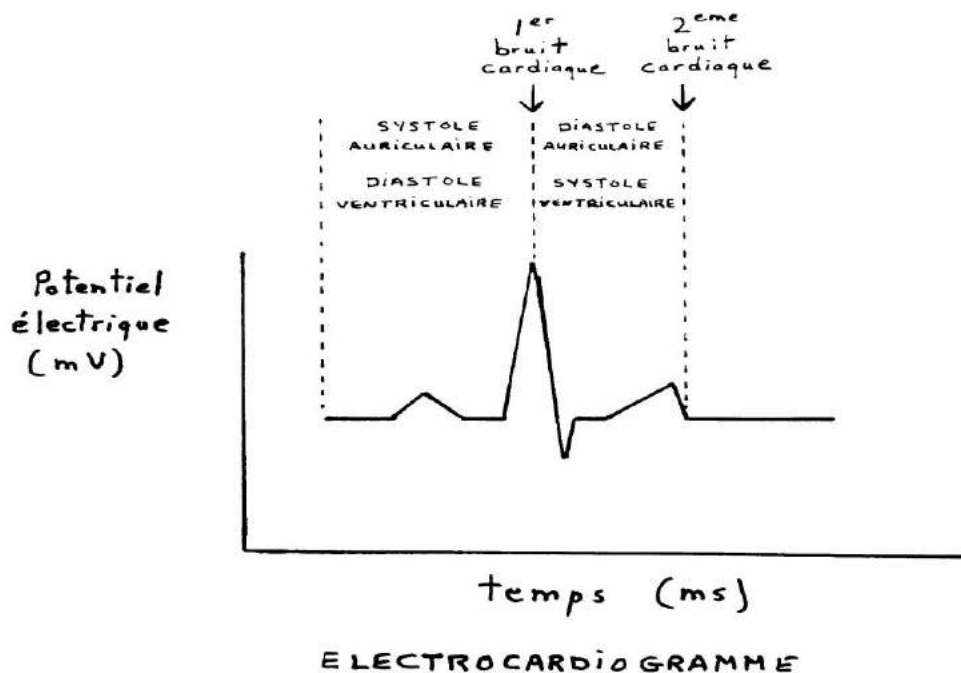 1er
bruit
cardiaque
2eme
bruit
cardiaque
SYSTOLE
AURICULAIRE
DIASTOLE
AURICULAIRE
DIASTOLE
VENTRICULAIRE
SYSTOLE
VENTRICULAIRE
Potentiel
électrique
(mV)
temps (ms)
ELECTROCARDIOGRAMME